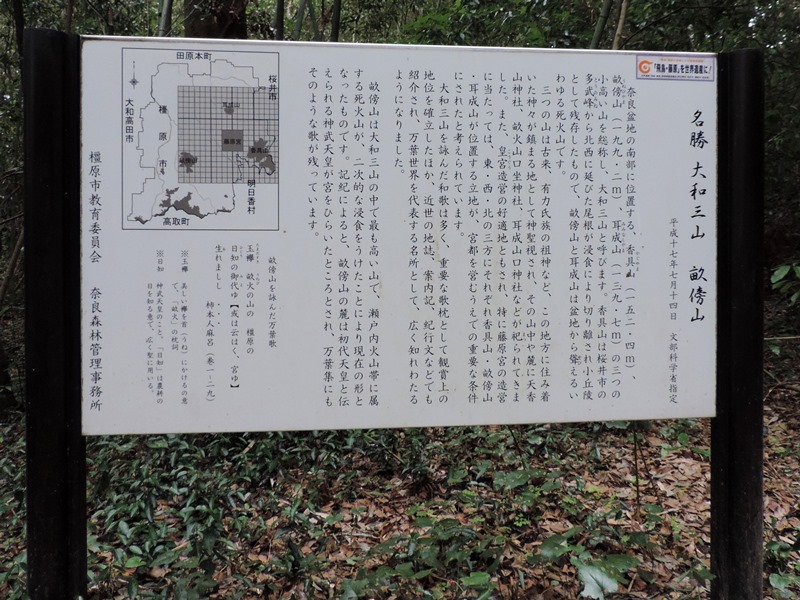 「飛鳥・藤原」を世界遺産に!
名勝 大和三山 畝傍山
平成十七年七月十四日 文部科学省指定
奈良盆地の南部に位置する、香具山(一五二・四m)、
畝傍山(一九九・二m)、耳成山(一三九・七m)の三つの
小高い山を総称し、大和三山と呼びます。香具山は桜井市の
多武峰から北西に延びた尾根が浸食により切り離され小丘陵
として残存したもので、畝傍山と耳成山は盆地から聳えるい
わゆる死火山です。
三つの山は古来、有力氏族の祖神など、この地方に住み着
いた神々が鎮まる地として神聖視され、その山中や麓に天香
山神社、畝火山口坐神社、耳成山口神社などが祀られてきま
した。また、皇宮造営の好適地ともされ、特に藤原宮の造営
に当たっては、東・西・北の三方にそれぞれ香具山・畝傍山
・耳成山が位置する立地が、宮都を営むうえでの重要な条件
にされたと考えられています。
大和三山を詠んだ和歌は多く、重要な歌枕として観賞上の
地位を確立したほか、近世の地誌、案内記、紀行文などでも
紹介され、万葉世界を代表する名所として、広く知れわたる
ようになりました。
畝傍山は大和三山の中で最も高い山で、瀬戸内火山帯に属
する死火山が、二次的な浸食をうけたことにより現在の形と
なったものです。記紀によると、畝傍山の麓は初代天皇と伝
えられる神武天皇が宮をひらいたところとされ、万葉集にも
そのような歌が残っています。
畝傍山を詠んだ万葉歌
玉襷 畝火の山の 橿原の
日知の御代ゆ【或は云はく、宮ゆ】
生れましし・・・
柿本人麻呂(巻一-二九)
※玉襷 美しい襷を首(うね)にかけるの意
で、「畝火」の枕詞
※日知 神武天皇のこと。「日知」は農耕の
日を知る意で、広く聖に用いる。
橿原市教育委員会 奈良森林管理事務所
田原本町
桜井市
橿原市
大和高田市
明日香村
高取町
耳成山
藤原宮
香具山
畝傍山